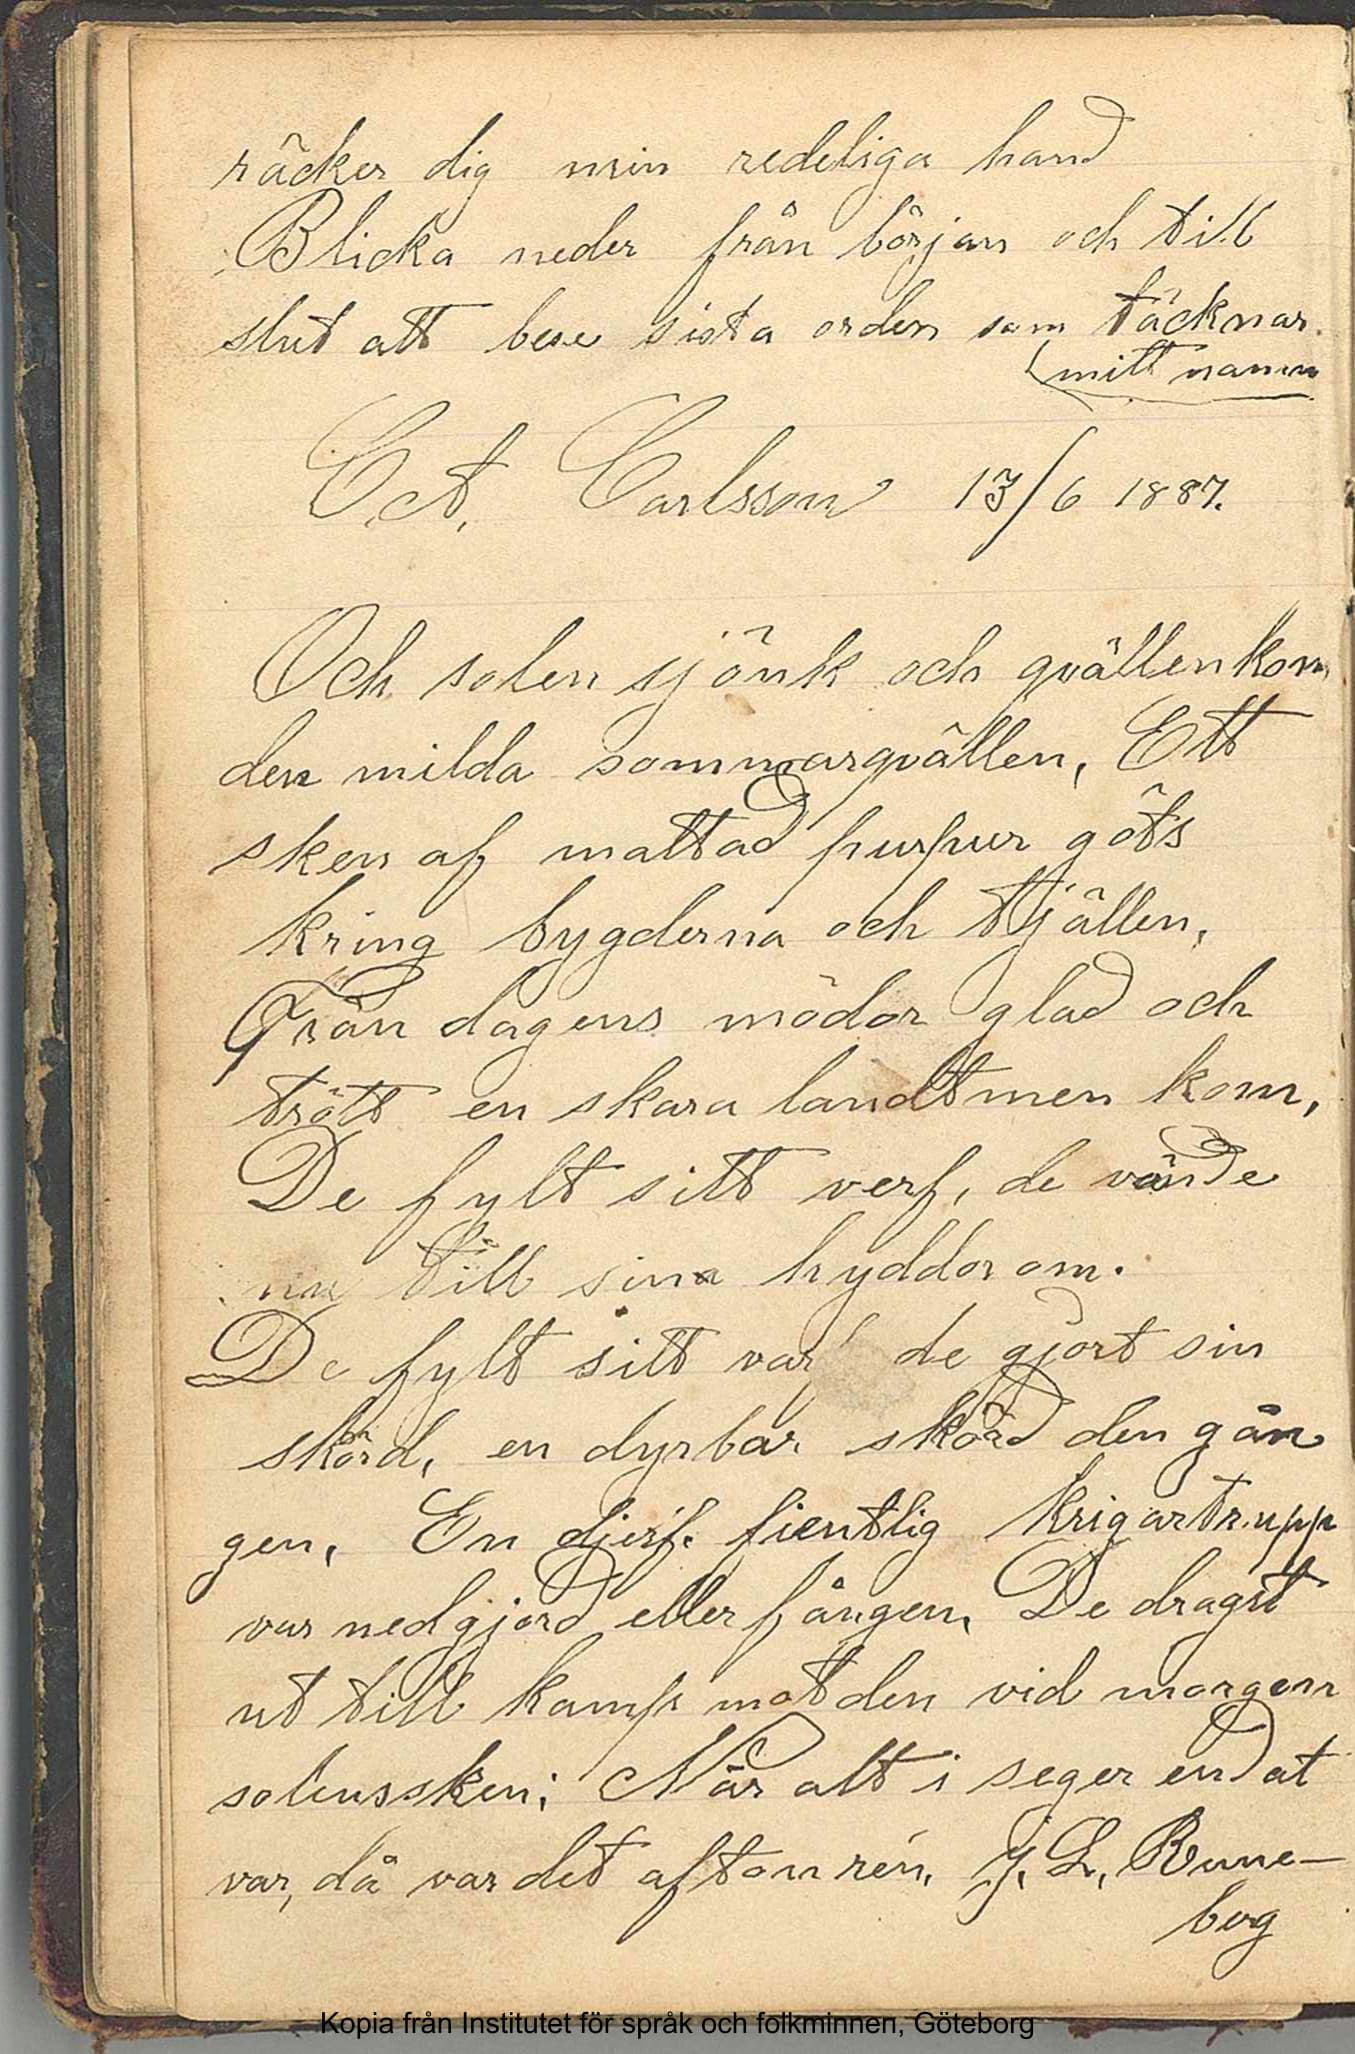 räcker dig min redeliga hand
Blicka neder från början och till
slut att bese sista orden som täcknar
(mitt namn
Carlsson 13/6 1887.
Och solen sjönk och qvällen kom,
den milda sommarqvällen, Ett
sken af mattad purpur göts
kring bygderna och tjällen,
Från dagens mödor glad och
trött en skara landtmen kom,
De fylt sitt verf, de vände
nu till sina hyddor om.
De fylt sitt varf de gjort sin
skörd, en dyrbar skörd den gån
gen, En djerf. fientlig krigartrupp
var nedgjord eller fången, De dragit
ut till kamp mot den vid morgon
solenssken; När alt i seger endat
var, då var det afton ren, J. L. Rune-
berg
Kopia från Institutet för språk och folkminnen, Göteborg